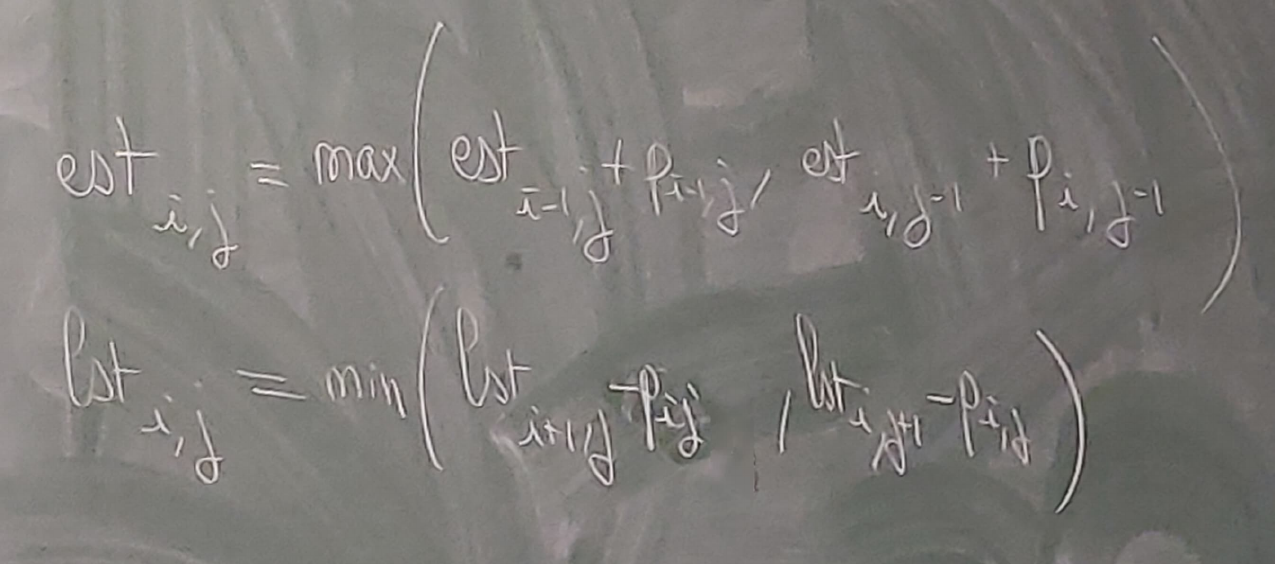 est_{i,j} = max( est_{i-1,j} + p_{i-1,j}, est_{i,j-1} + p_{i,j-1} )
lst_{i,j} = min( lst_{i+1,j} - p_{ij}, lst_{i,j+1} - p_{i,j} )